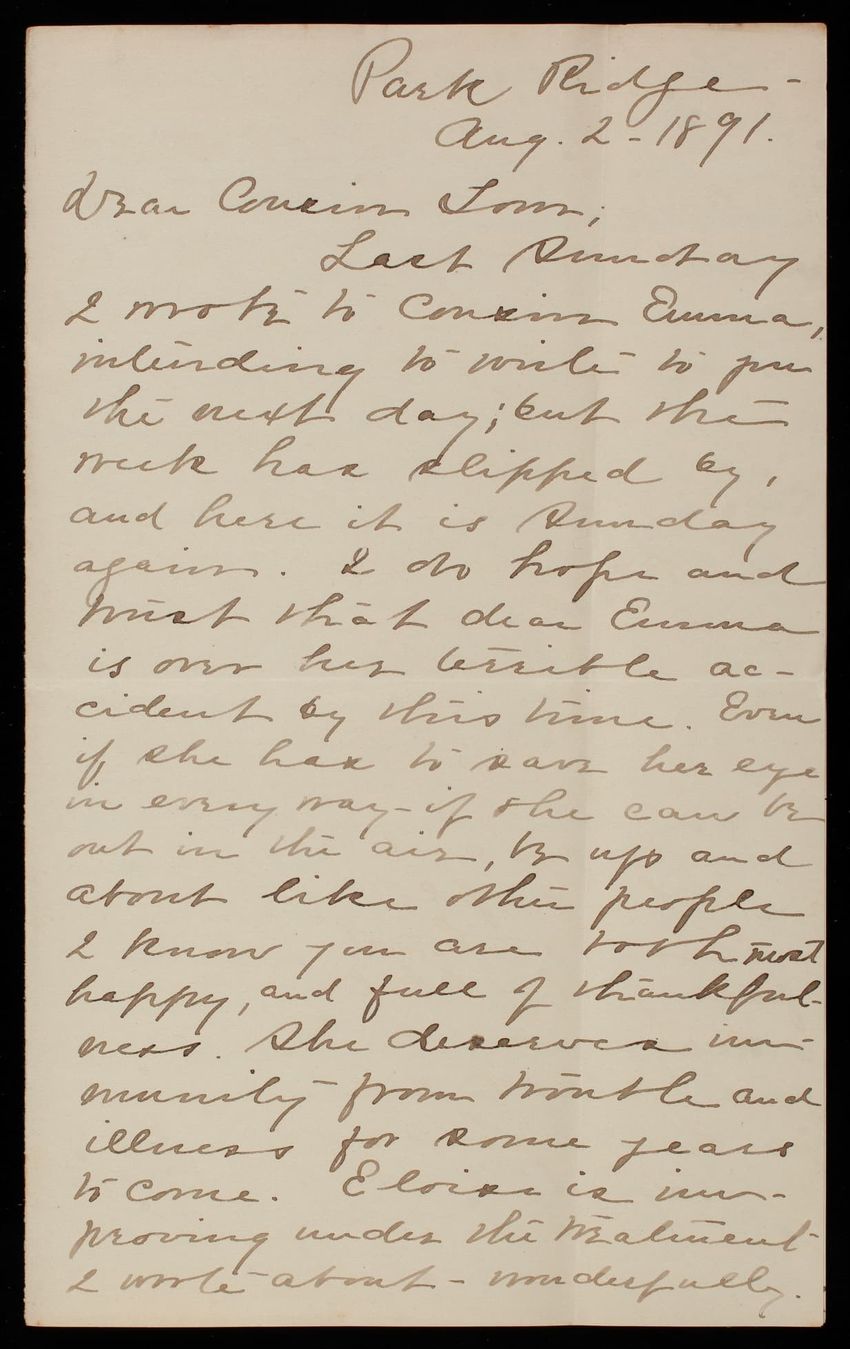 Park Ridge -
Aug. 2 - 1891.
Dear Cousin Tom;
Last Sunday
I wrote to Cousin Emma,
intending to write to you
the next day; but the
week has slipped by,
and here it is Sunday
again. I do hope and
trust that dear Emma
is over her terrible ac-
cident by this time. Even
if she has to save her eye
in every way - if she can be
out in the air, be up and
about like other people
I know you are both most
happy, and full of thankful-
ness. She deserves im-
munity from trouble and
illness for some years
to come. Eloise is im-
proving under the treatment
I wrote about - wonderfully.